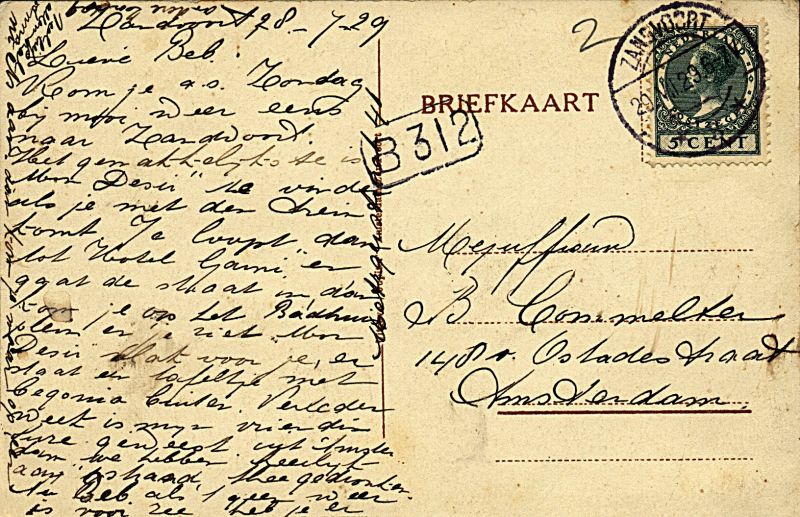 Zandvoort 28-7-29
Lieve Beb.
Kom je a.s. Zondag
bij mooi weer eens
naar Zandvoort.
Het gemakkelijkste is
"Mon Desir" te vinden
als je met den trein
komt. Je loopt dan
tot Hotel Garni, er
gaat de straat in dan
kom je op het Badhuis
plein en je ziet Mon
Desir vlak voor je, er
staat een tafeltje met
begonia buiten. Verleden
week is mijn vriendin
hier geweest uit Amster
dam we hebben heerlijk
aan 't strand thee gedronken.
Nu Beb als 't geen weer
is voor zee heb je er
BRIEFKAART
B 312
2
ZANDVOORT
NEDERLAND
5 CENT
Mejuffrouw
B Commelter
148 v. Ostadestraat
Amsterdam.